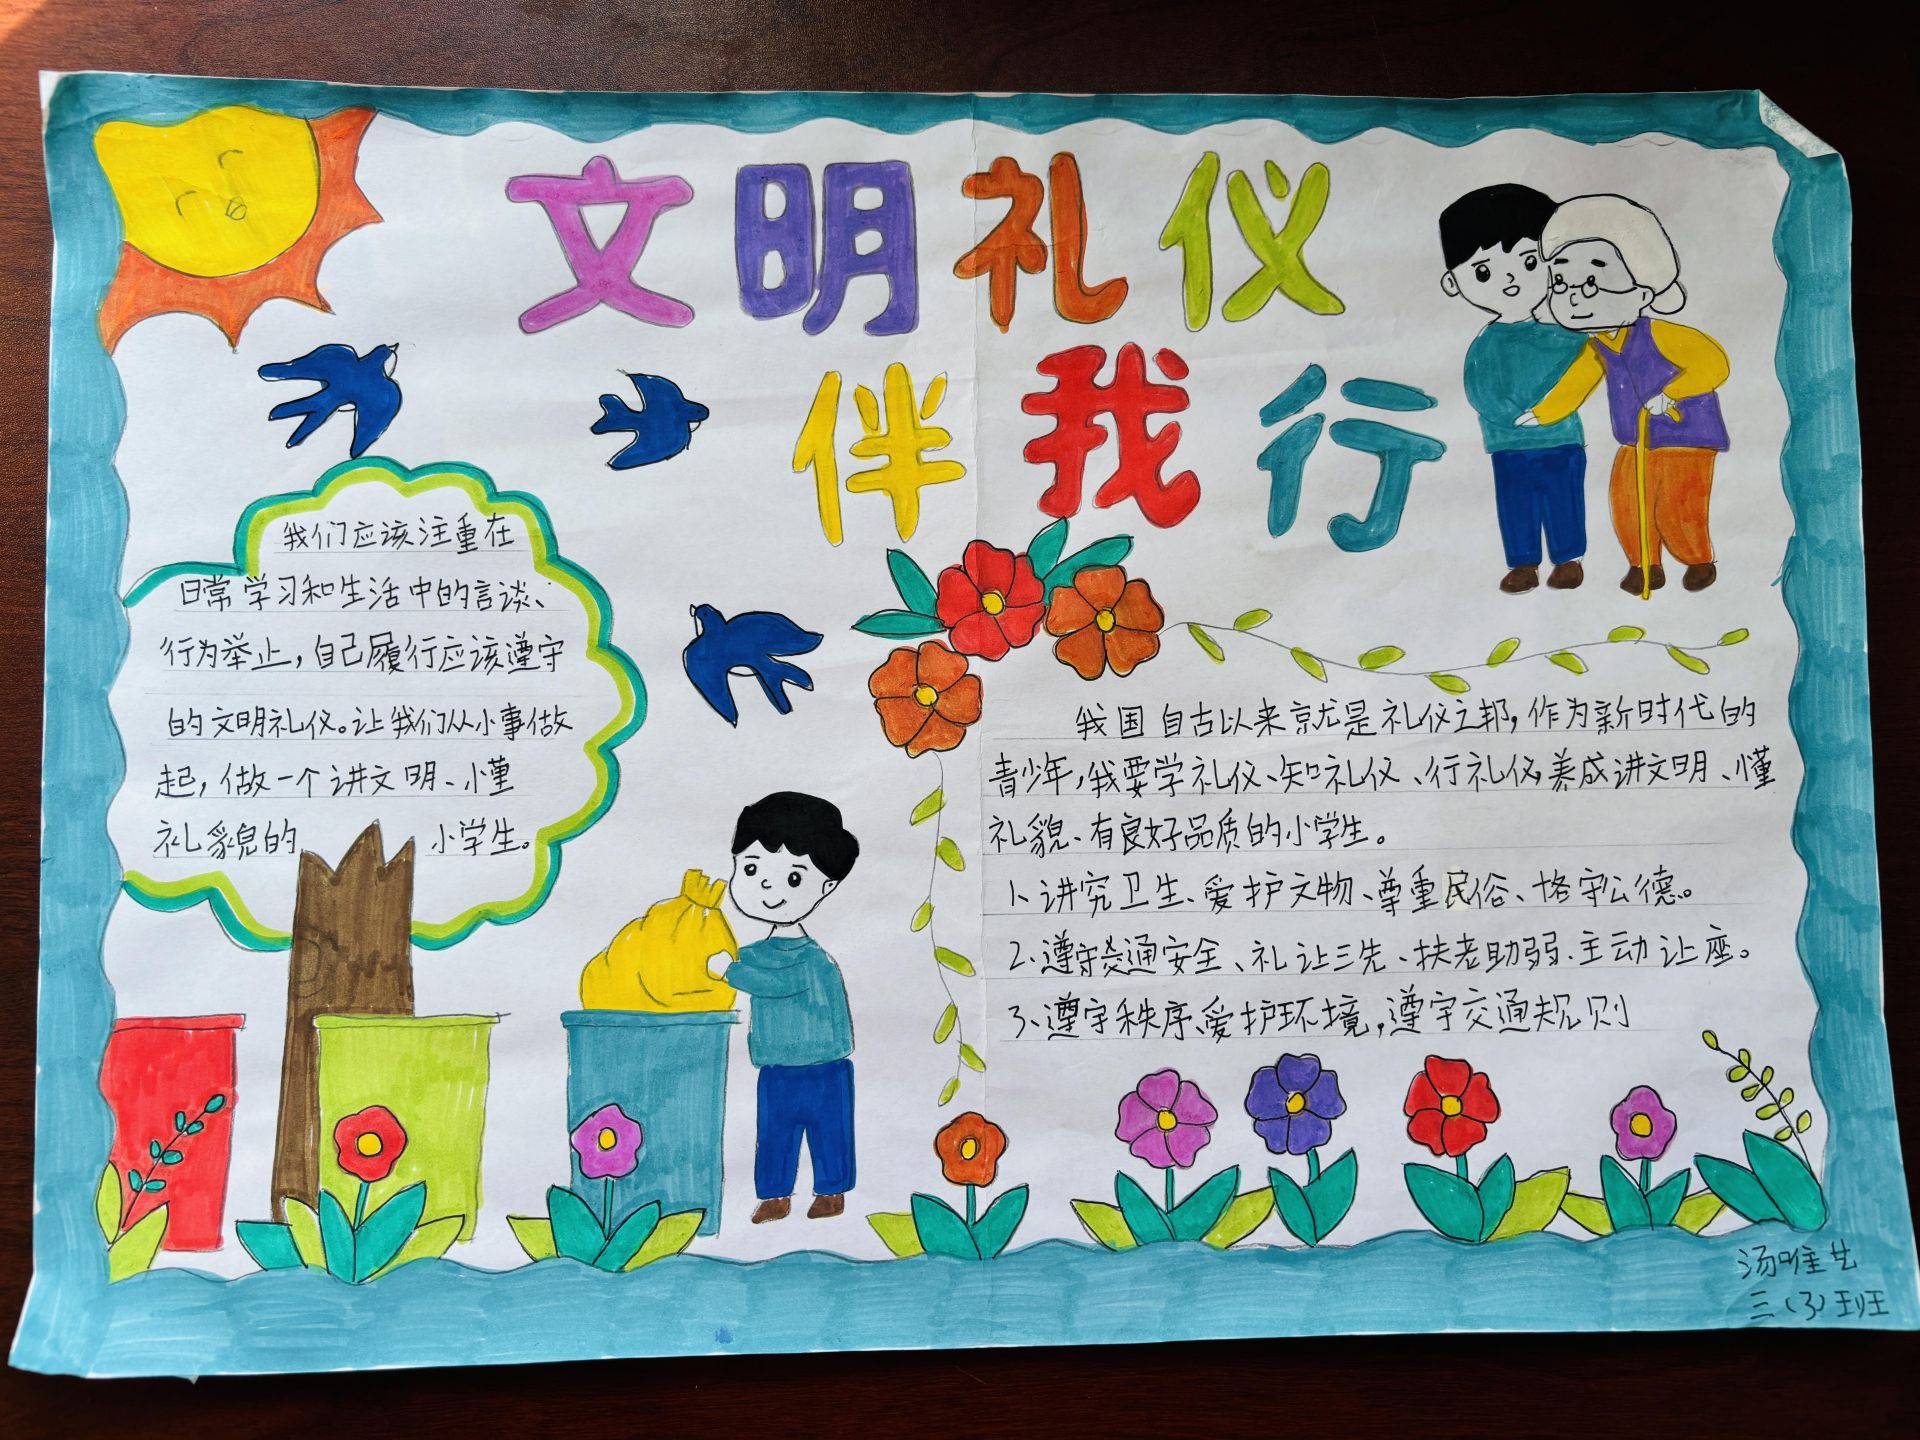 文明礼仪
伴我行
我们应该注重在
日常学习和生活中的言谈、
行为举止，自己履行应该遵守
的文明礼仪。让我们从小事做
起，做一个讲文明、懂
礼貌的小学生。
我国自古以来京尤是礼仪之邦，作为新时代的
青少年，我要学礼仪、知礼仪、行礼仪，养成讲文明、懂
礼貌、有良好品质的小学生。
1、讲究卫生、爱护文物、尊重民俗、恪守公德。
2、遵守交通安全、礼让三先、扶老助弱、主动让座。
3、遵守秩序、爱护环境，遵守交通规则
汤唯
三（3）班